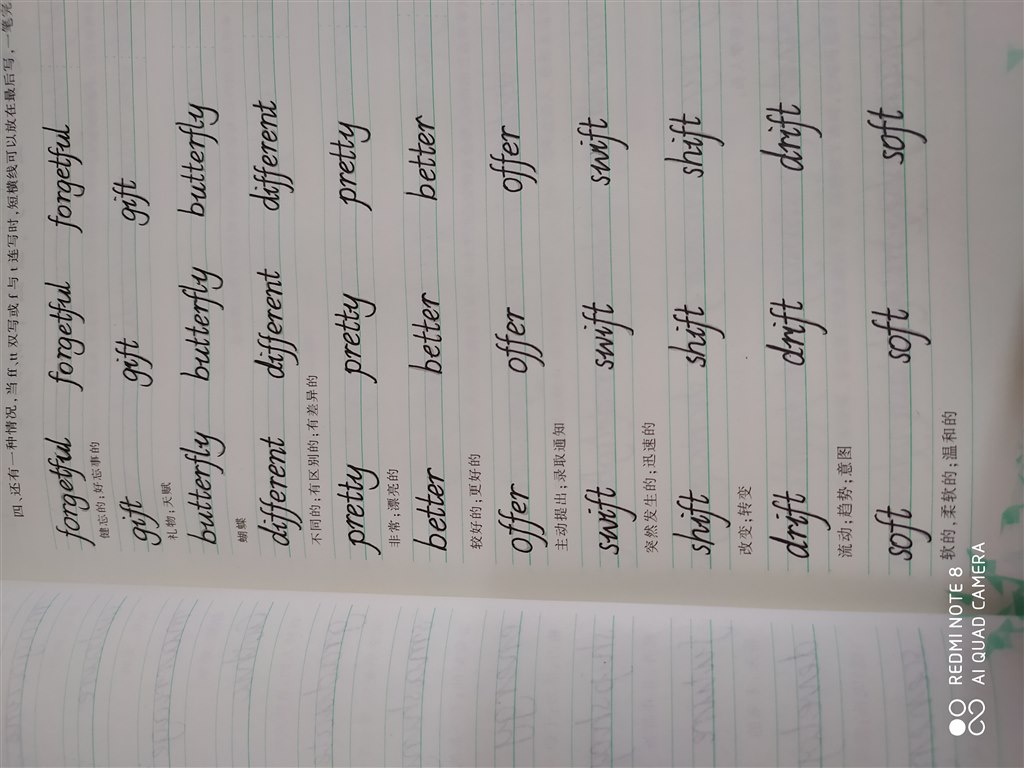 四、还有一种情况,当ff,tt双写或f与t连写时,短横线可以放在最后写,一笔
forgetful forgetful forgetful
健忘的;好忘事的
gift gift gift
礼物;天赋
butterfly butterfly butterfly
蝴蝶
different different different
不同的;有区别的;有差异的
pretty pretty pretty
非常;漂亮的
better better better
较好的;更好的
offer offer offer
主动提出;录取通知
swift swift swift
突然发生的;迅速的
shift shift shift
改变;转变
drift drift drift
流动;趋势;意图
soft soft soft
软的,柔软的;温和的
REDMI NOTE 8
AI QUAD CAMERA